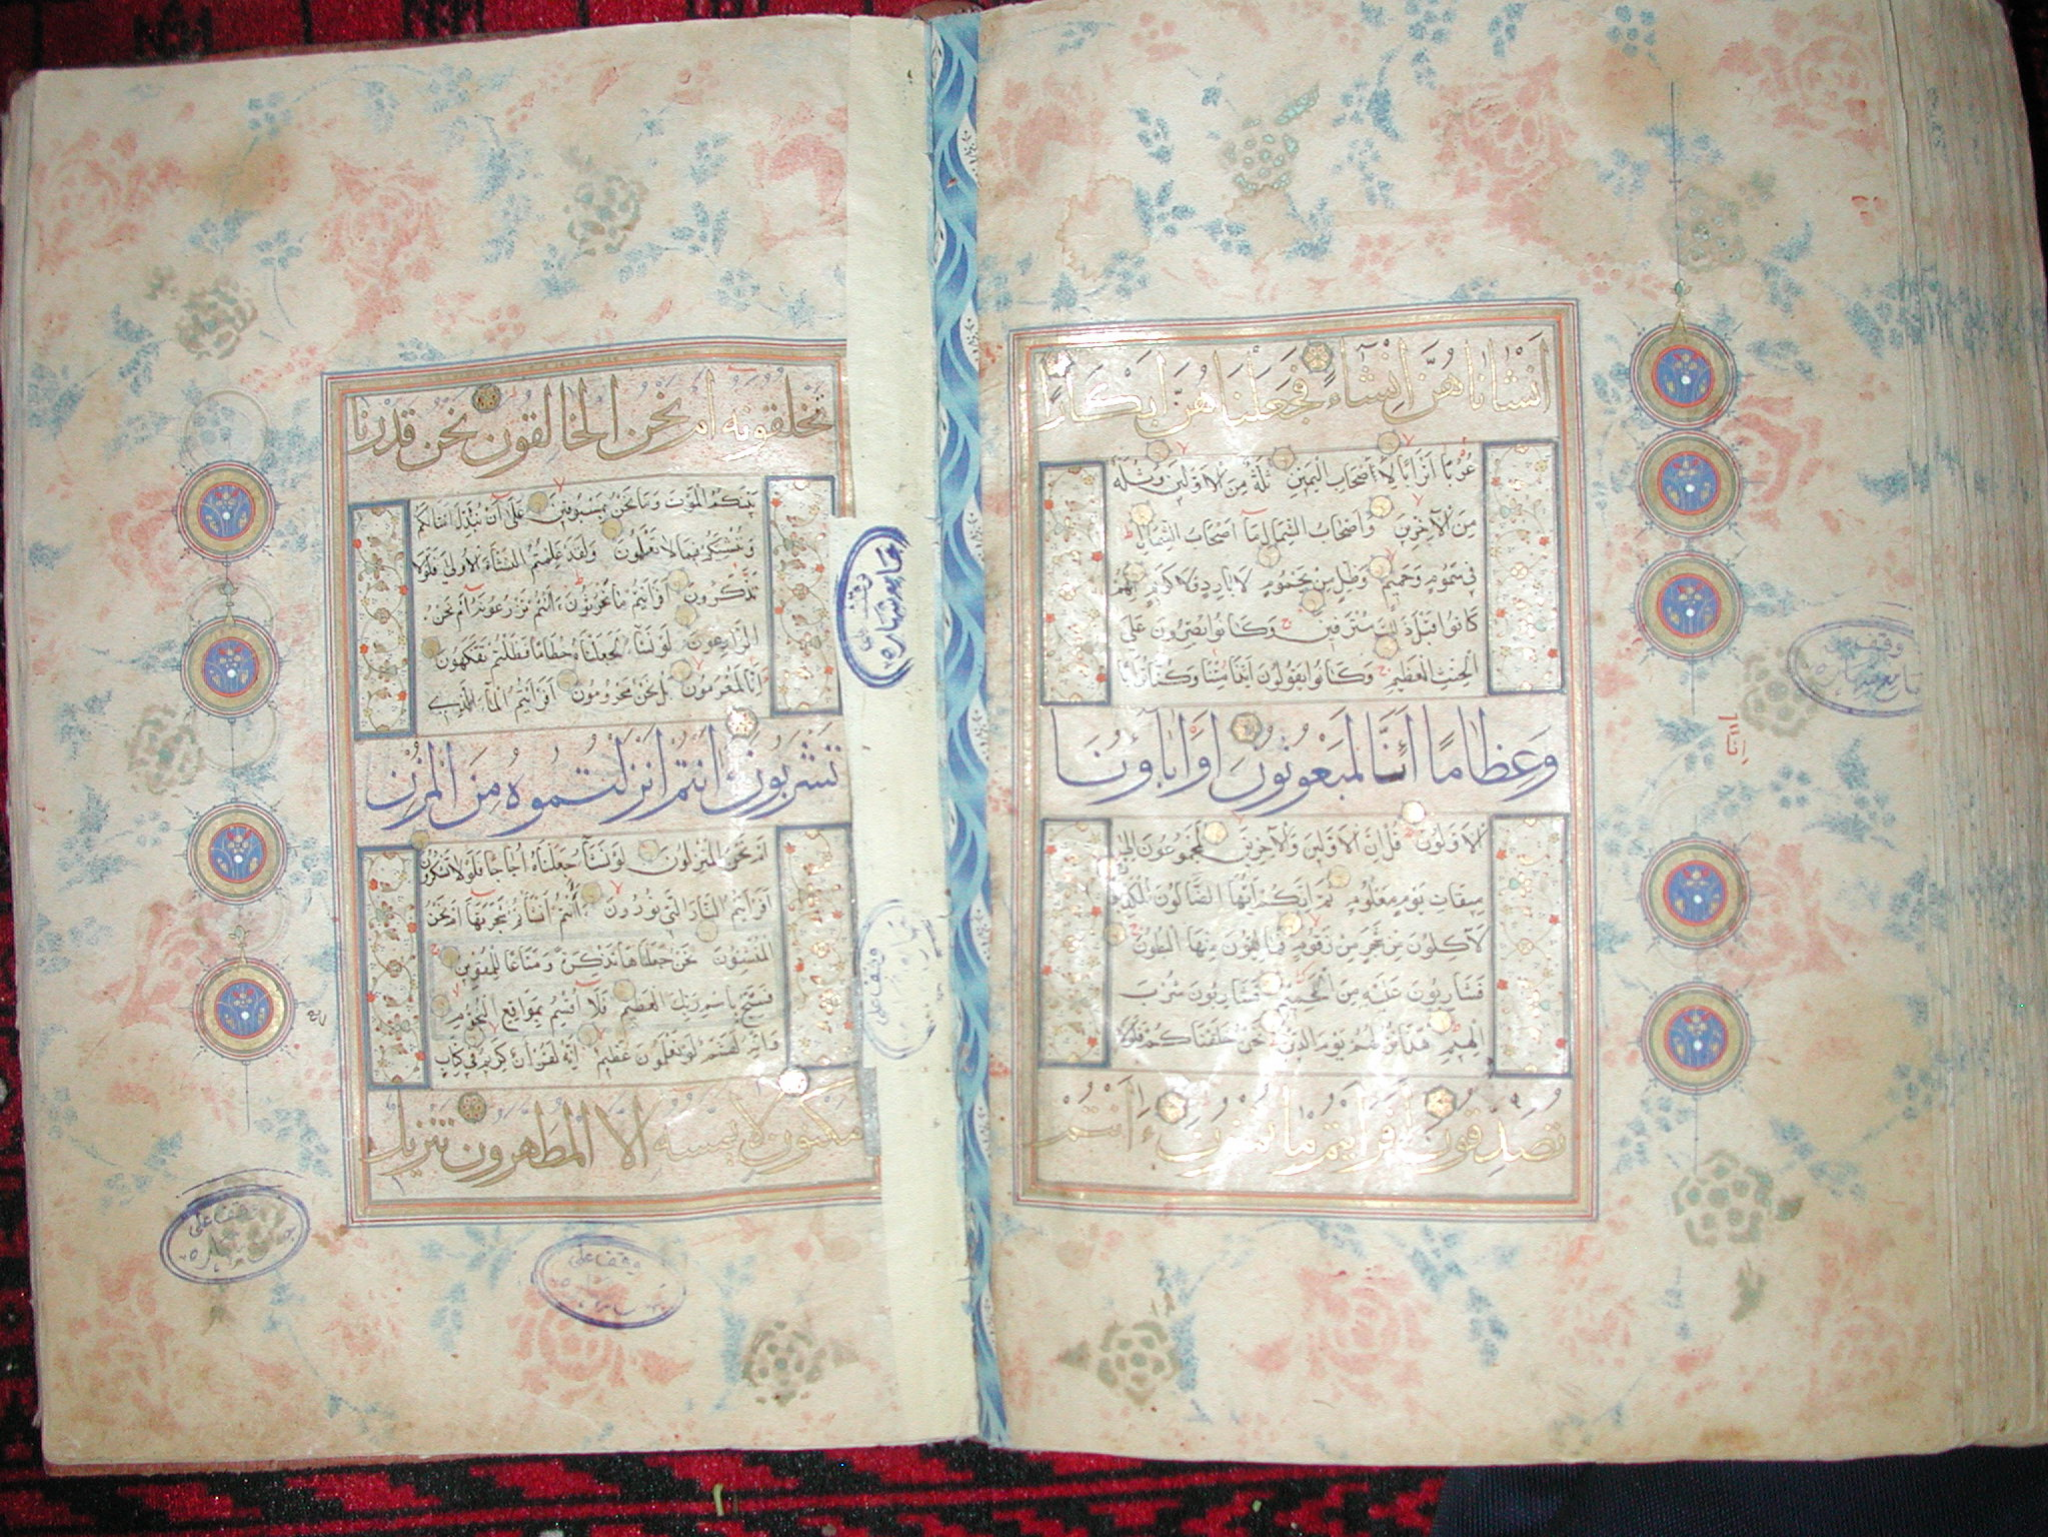 انشاناهن انشاء فجعلناهن ابكارا
عربا اترابا لاصحاب اليمين ثلة من الاولين وثلة
من الآخرين واصحاب الشمال ما اصحاب الشمال
في سموم وحميم وظل من يحموم لا بارد ولا كريم انهم
كانوا قبل ذلك مترفين وكانوا يصرون على
الحنث العظيم وكانوا يقولون ائذا متنا وكنا ترابا
وعظاما ائنا لمبعوثون اوآباؤنا
الاولون قل ان الاولين والآخرين لمجموعون الى
ميقات يوم معلوم ثم انكم ايها الضالون المكذبون
لآكلون من شجر من زقوم فمالؤن منها البطون
فشاربون عليه من الحميم فشاربون شرب
الهيم هذا نزلهم يوم الدين نحن خلقناكم فلولا
تصدقون افرايتم ما تمنون ءانتم
تخلقونه ام نحن الخالقون نحن قدرنا
بينكم الموت وما نحن بمسبوقين على ان نبدل امثالكم
وننشئكم فيما لا تعلمون ولقد علمتم النشاة الاولى فلولا
تذكرون افرايتم ما تحرثون ءانتم تزرعونه ام نحن
الزارعون لو نشآء لجعلناه حطاما فظلتم تفكهون
انا لمغرمون بل نحن محرومون افرايتم المآء الذي
تشربون ءانتم انزلتموه من المزن
ام نحن المنزلون لو نشآء جعلناه اجاجا فلولا تشكرون
افرايتم النار التي تورون ءانتم انشاتم شجرتها ام نحن
المنشئون نحن جعلناها تذكرة ومتاعا للمقوين
فسبح باسم ربك العظيم فلا اقسم بمواقع النجوم
وانه لقسم لو تعلمون عظيم انه لقرآن كريم في كتاب
مكنون لا يمسه الا المطهرون تنزيل
وقف على